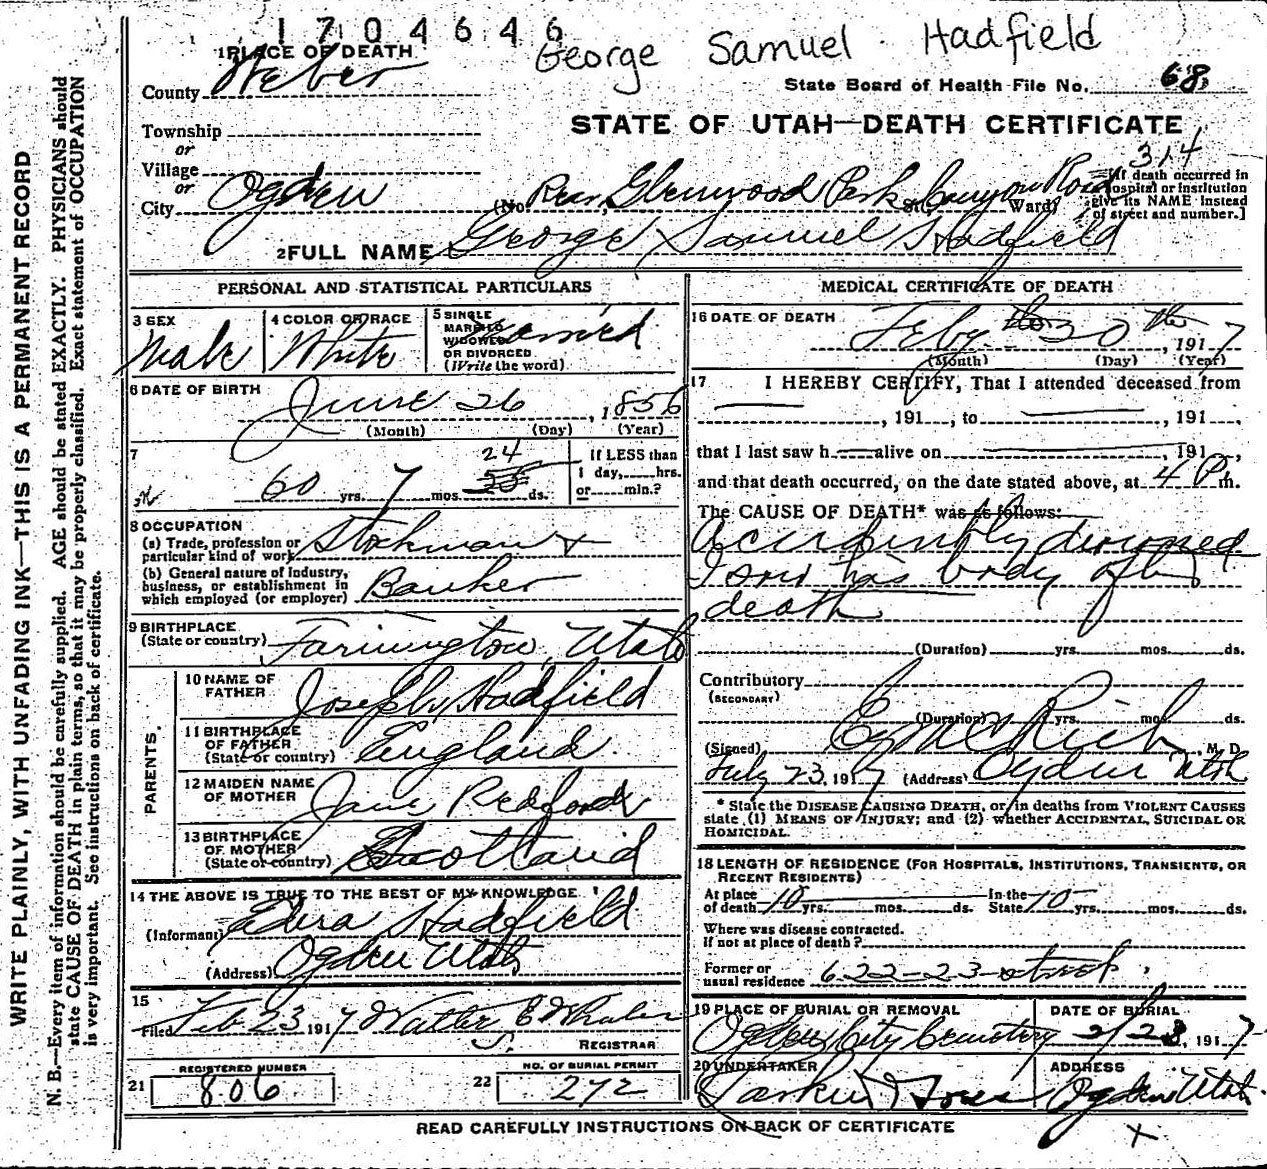 1704646
George Samuel Hadfield
1 PLACE OF DEATH
County Weber
State Board of Health File No. 68
STATE OF UTAH—DEATH CERTIFICATE
Township
or
Village
or
City Ogden (No. Rear, Glenwood Park St., Canyon Road Ward)
314
[If death occurred in
a hospital or institution
give its NAME instead
of street and number.]
2 FULL NAME George Samuel Hadfield
PERSONAL AND STATISTICAL PARTICULARS
3 SEX
Male
4 COLOR OR RACE
White
5 SINGLE
MARRIED
WIDOWED
OR DIVORCED
(Write the word)
Married
6 DATE OF BIRTH
June 26, 1856
(Month) (Day) (Year)
7
60 yrs. 7 mos. 24 ds.
If LESS than
1 day, hrs.
or min.?
8 OCCUPATION
(a) Trade, profession or
particular kind of work Stockman +
(b) General nature of industry,
business, or establishment in
which employed (or employer) Banker
9 BIRTHPLACE
(State or country) Farmington, Utah
PARENTS.
10 NAME OF
FATHER Joseph Hadfield
11 BIRTHPLACE
OF FATHER
(State or country) England
12 MAIDEN NAME
OF MOTHER Jane Redford
13 BIRTHPLACE
OF MOTHER
(State or country) Scotland
14 THE ABOVE IS TRUE TO THE BEST OF MY KNOWLEDGE
(Informant) Hadfield
(Address) Ogden Utah
15
Filed Feb 23 1917 Walter E Whalen
REGISTRAR
21 REGISTERED NUMBER
806
22 NO. OF BURIAL PERMIT
272
MEDICAL CERTIFICATE OF DEATH
16 DATE OF DEATH
Feby. 20th, 1917
(Month) (Day) (Year)
17 I HEREBY CERTIFY, That I attended deceased from
, 191 , to , 191 ,
that I last saw h alive on , 191 ,
and that death occurred, on the date stated above, at 4 P m.
The CAUSE OF DEATH* was as follows:
Accidently drowned
I saw his body after
death
(Duration) yrs. mos. ds.
Contributory
(SECONDARY)
(Duration) yrs. mos. ds.
(Signed) Rich, M D
July 23, 1917 (Address) Ogden Utah
* State the DISEASE CAUSING DEATH, or, in deaths from VIOLENT CAUSES
state (1) MEANS OF INJURY; and (2) whether ACCIDENTAL, SUICIDAL OR
HOMICIDAL.
18 LENGTH OF RESIDENCE (FOR HOSPITALS, INSTITUTIONS, TRANSIENTS, OR
RECENT RESIDENTS)
At place
of death 10 yrs. mos. ds. In the
State 10 yrs. mos. ds.
Where was disease contracted.
if not at place of death?
Former or
usual residence 622-23-street.
19 PLACE OF BURIAL OR REMOVAL
Ogden City Cemetery
DATE OF BURIAL
2/23, 1917
20 UNDERTAKER
Larkin & Sons
ADDRESS
Ogden Utah.
READ CAREFULLY INSTRUCTIONS ON BACK OF CERTIFICATE
X
WRITE PLAINLY, WITH UNFADING INK—THIS IS A PERMANENT RECORD
N. B.—Every item of information should be carefully supplied. AGE should be stated EXACTLY. PHYSICIANS should
state CAUSE OF DEATH in plain terms, so that it may be properly classified. Exact statement of OCCUPATION
is very important. See instructions on back of certificate.